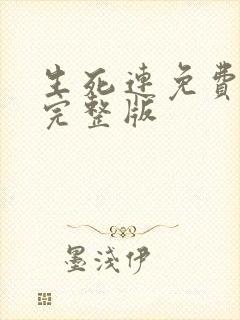 生死連免費
完整版
墨淺伊